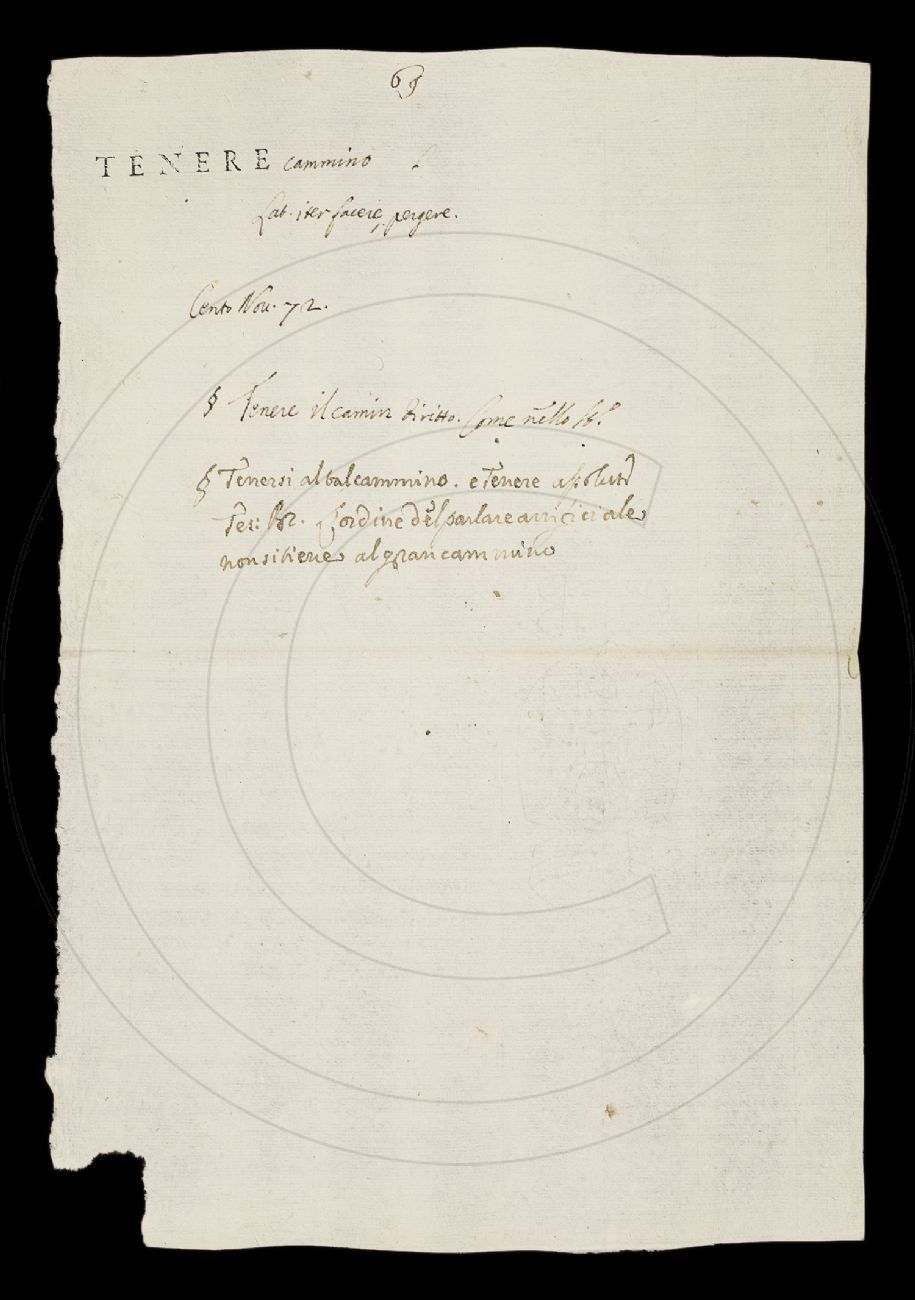 69
TENERE cammino
Lat. iter facere, pergere.
Cento Nov. 72.
§ Tenere il camin diritto. Come nello
§ Tenersi al tal cammino. e Tenere assolut
Tes: Br. L'ordine del parlare artificiale
non si tiene al gran cammino